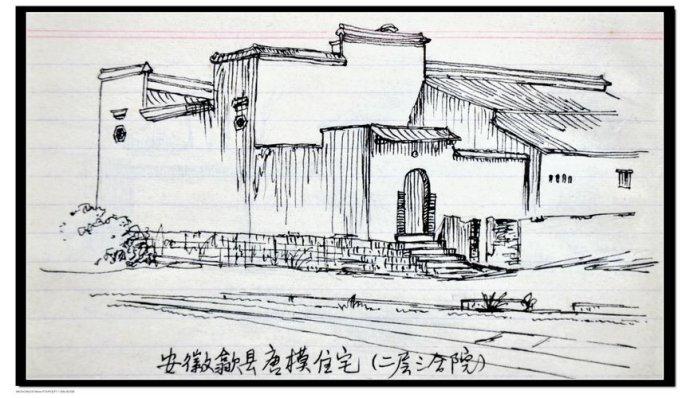 安徽歙县唐模住宅(二层三合院)